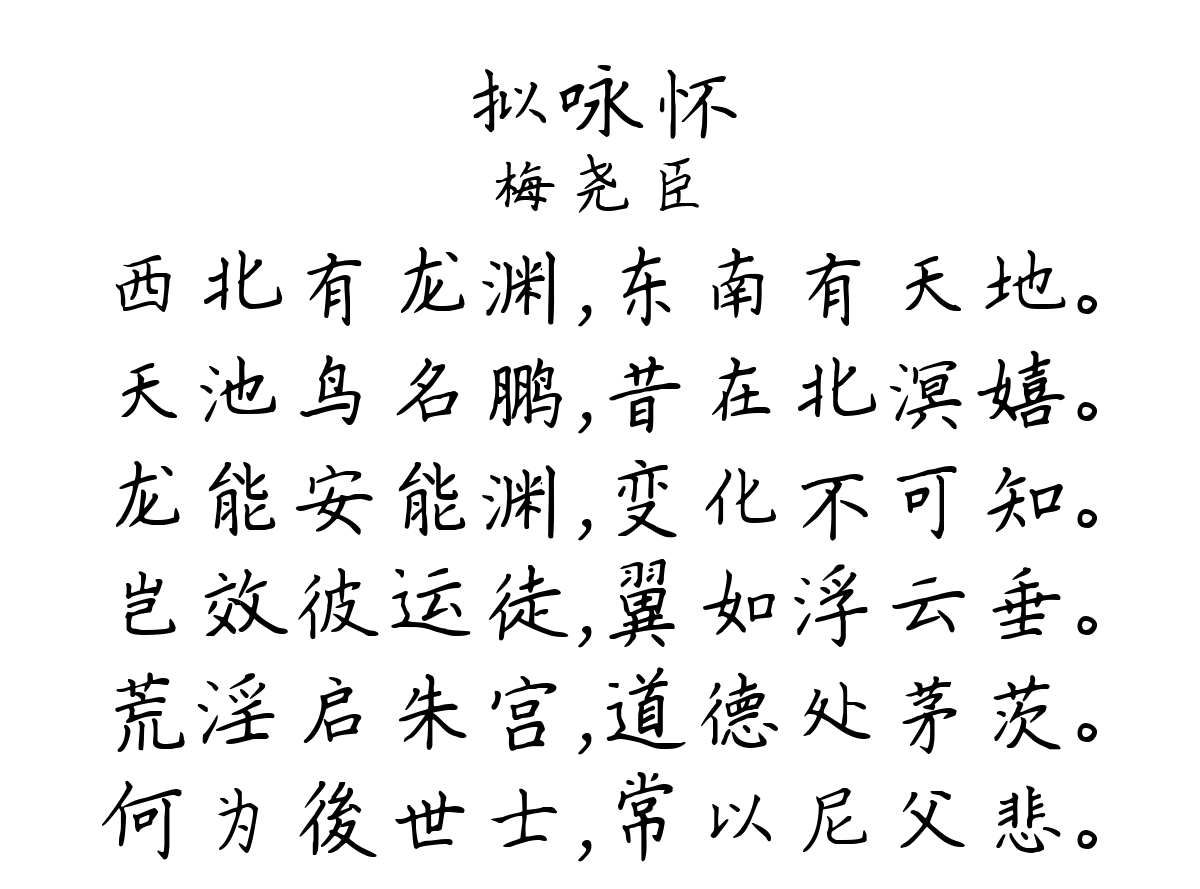 拟咏怀
梅尧臣
西北有龙渊,东南有天地。
天池鸟名鹏,昔在北溟嬉。
龙能安能渊,变化不可知。
岂效彼运徒,翼如浮云垂。
荒淫启朱宫,道德处茅茨。
何为後世士,常以尼父悲。